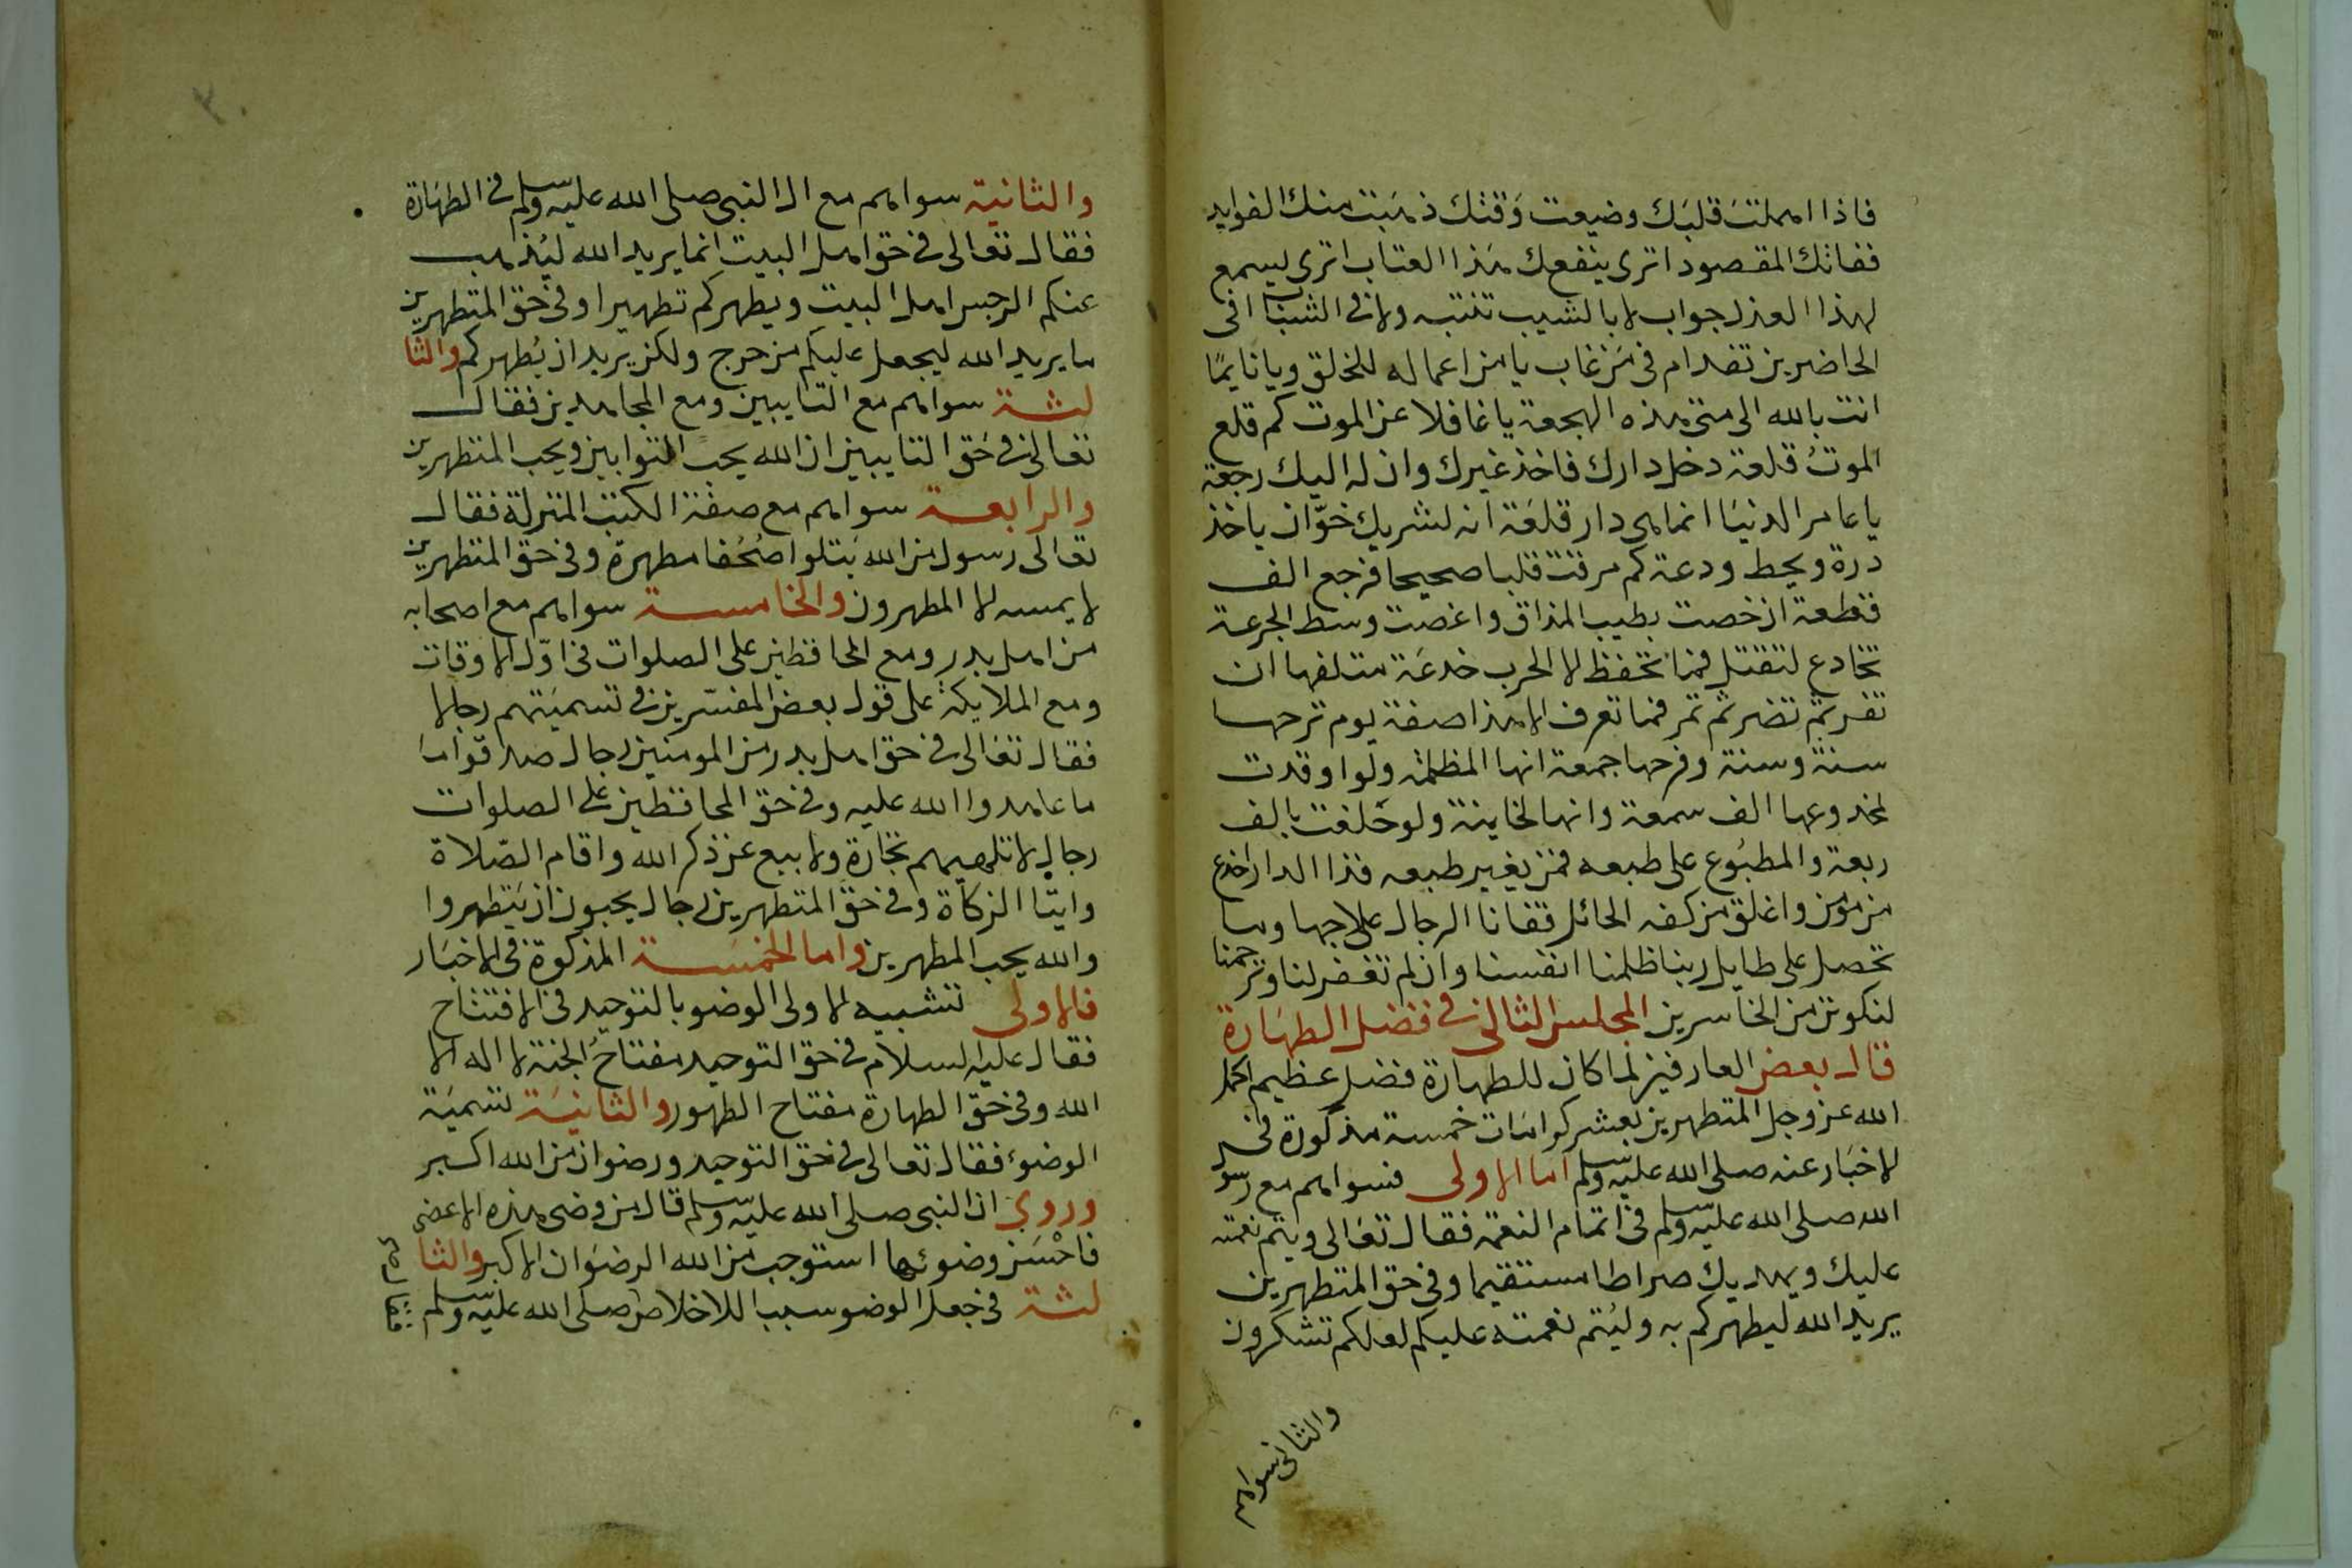 فاذا اهملت قلبك وضيعت وقتك ذهبت منك الفوايد
ففاتك المقصود اترى ينفعك هذا العتاب اترى ليسمع
لهذا العذل جواب لا بالشيب تنتبه ولا في الشباب افى
الحاضرين تعد ام فى من غاب يا من اعماله للخلق ويا نايما
انت بالله الى متى هذه الهجعة يا غافلا عن الموت كم قلع
الموت قلعة دخل دارك فاخذ غيرك وان له اليك رجعة
يا عامر الدنيا انما هي دار قلعة انه لشريك خوان ياخذ
درة ويحط ودعة كم مرقت قلبا صحيحا فرجع الف
قطعة ان خصت بطيب المذاق واغصت وسط الجرعة
تخادع لتقتل فما تحفظ لا الحرب خدعة متلفها ان
تغر ثم تضر ثم تمر فما تعرف الا هذا صفة يوم ترحها
سنة وسنة وفرحها جمعة انها المظلمة ولو اوقدت
لمخدوعها الف سمعة وانها لخاينة ولو حلفت بالف
ربعة والمطبوع على طبعه فمن يغير طبعه فذا الدار اخدع
من مومن واغلق من كفه الحائل فقانا الرجال علاجها وما
تحصل على طايل ربنا ظلمنا انفسنا وان لم تغفر لنا وترحمنا
لنكونن من الخاسرين المجلس الثانى فى فضل الطهارة
قال بعض العارفين لما كان للطهارة فضل عظيم اكمل
الله عز وجل المتطهرين بعشر كرامات خمسة مذكورة فى
لاخبار عنه صلى الله عليه وسلم اما الاولى فسواهم مع رسو
الله صلى الله عليه وسلم فى اتمام النعمة فقال تعالى ويتم نعمته
عليك ويهديك صراطا مستقيما وفى حق المتطهرين
يريد الله ليطهركم به وليتم نعمته عليكم لعلكم تشكرون
والثانى سواهم
والثانية سواهم مع ال النبى صلى الله عليه وسلم فى الطهارة
فقال تعالى فى حق اهل البيت انما يريد الله ليذهب
عنكم الرجس اهل البيت ويطهركم تطهيرا وفى حق المتطهرين
ما يريد الله ليجعل عليكم من حرج ولكن يريد ان يطهركم والثا
لثة سواهم مع التايبين ومع المجاهدين فقال
تعالى فى حق التايبين ان الله يحب التوابين ويحب المتطهرين
والرابعة سواهم مع صفة الكتب المنزلة فقال
تعالى رسول من الله يتلوا صحفا مطهرة وفى حق المتطهرين
لا يمسه لا المطهرون والخامسة سواهم مع اصحابه
من اهل بدر ومع المحافظين على الصلوات فى اول الاوقات
ومع الملايكة على قول بعض المفسرين فى تسميتهم رجالا
فقال تعالى فى حق اهل بدر من المومنين رجال صدقوا ما
ما عاهدوا الله عليه وفى حق المحافظين على الصلوات
رجال لا تلهيهم تجارة ولا بيع عن ذكر الله واقام الصلاة
وايتا الزكاة وفى حق المتطهرين رجال يحبون ان يتطهروا
والله يحب المطهرين واما الخمسة المذكورة فى الاخبار
فالاولى تشبيه لاولى الوضو بالتوحيد فى الافتتاح
فقال عليه السلام فى حق التوحيد مفتاح الجنة لا اله الا
الله وفى حق الطهارة مفتاح الطهور والثانية تسمية
الوضوء فقال تعالى فى حق التوحيد ورضوان من الله اكبر
وروي ان النبى صلى الله عليه وسلم قال من وضى هذه الاعضى
فاحسن وضوئها استوجب من الله الرضوان الاكبر والثا
لثة فى جعل الوضو سببا للاخلاص صلى الله عليه وسلم